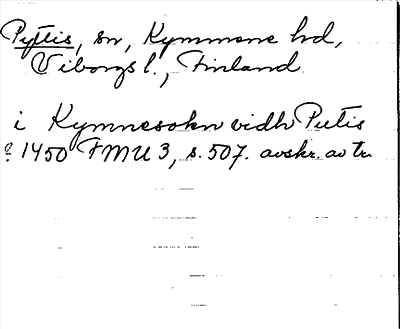 Pyttis, sn, Kymmene hd,
Viborgs l., Finland
i Kymnesokn vidh Putis
1450 FMU 3, s. 507. avskr. av tr.